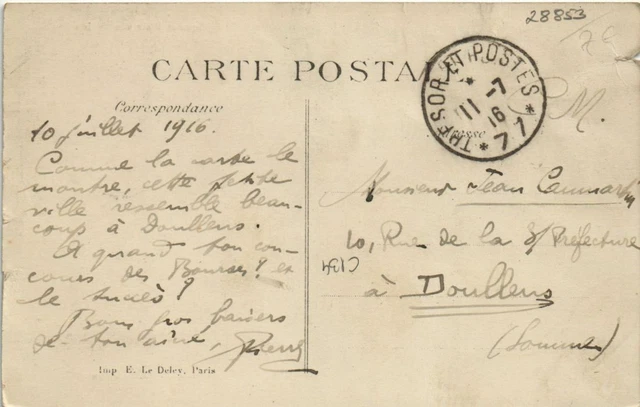 28853
CARTE POSTA
TRESOR ET POSTES
11-7
16
* 71 *
Correspondance
resse
F.M.
10 juillet 1916.
Comme la carte le
montre, cette petite
ville ressemble beau-
coup à Doullens.
Et quand ton con-
cours des Bourses? et
le succès?
Bons gros baisers
de ton aîné, Pierre
Monsieur Jean
10, Rue de la S/Préfecture
à Doullens
(Somme)
C134
Imp E. Le Deley, Paris